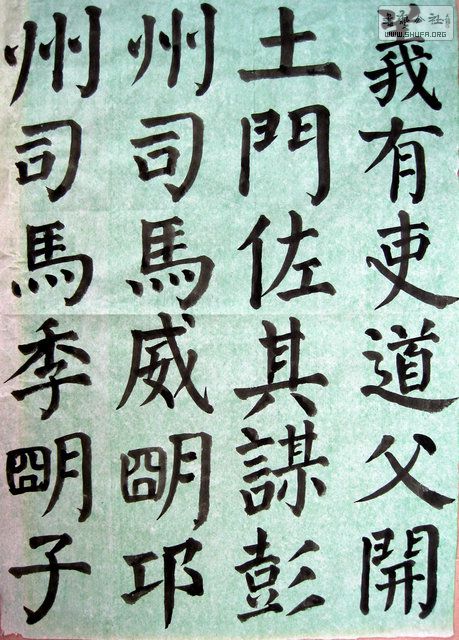 義有吏道父開
土門佐其謀彭
州司馬威朙邛
州司馬季朙子
書藝公社
WWW.SHUFA.ORG